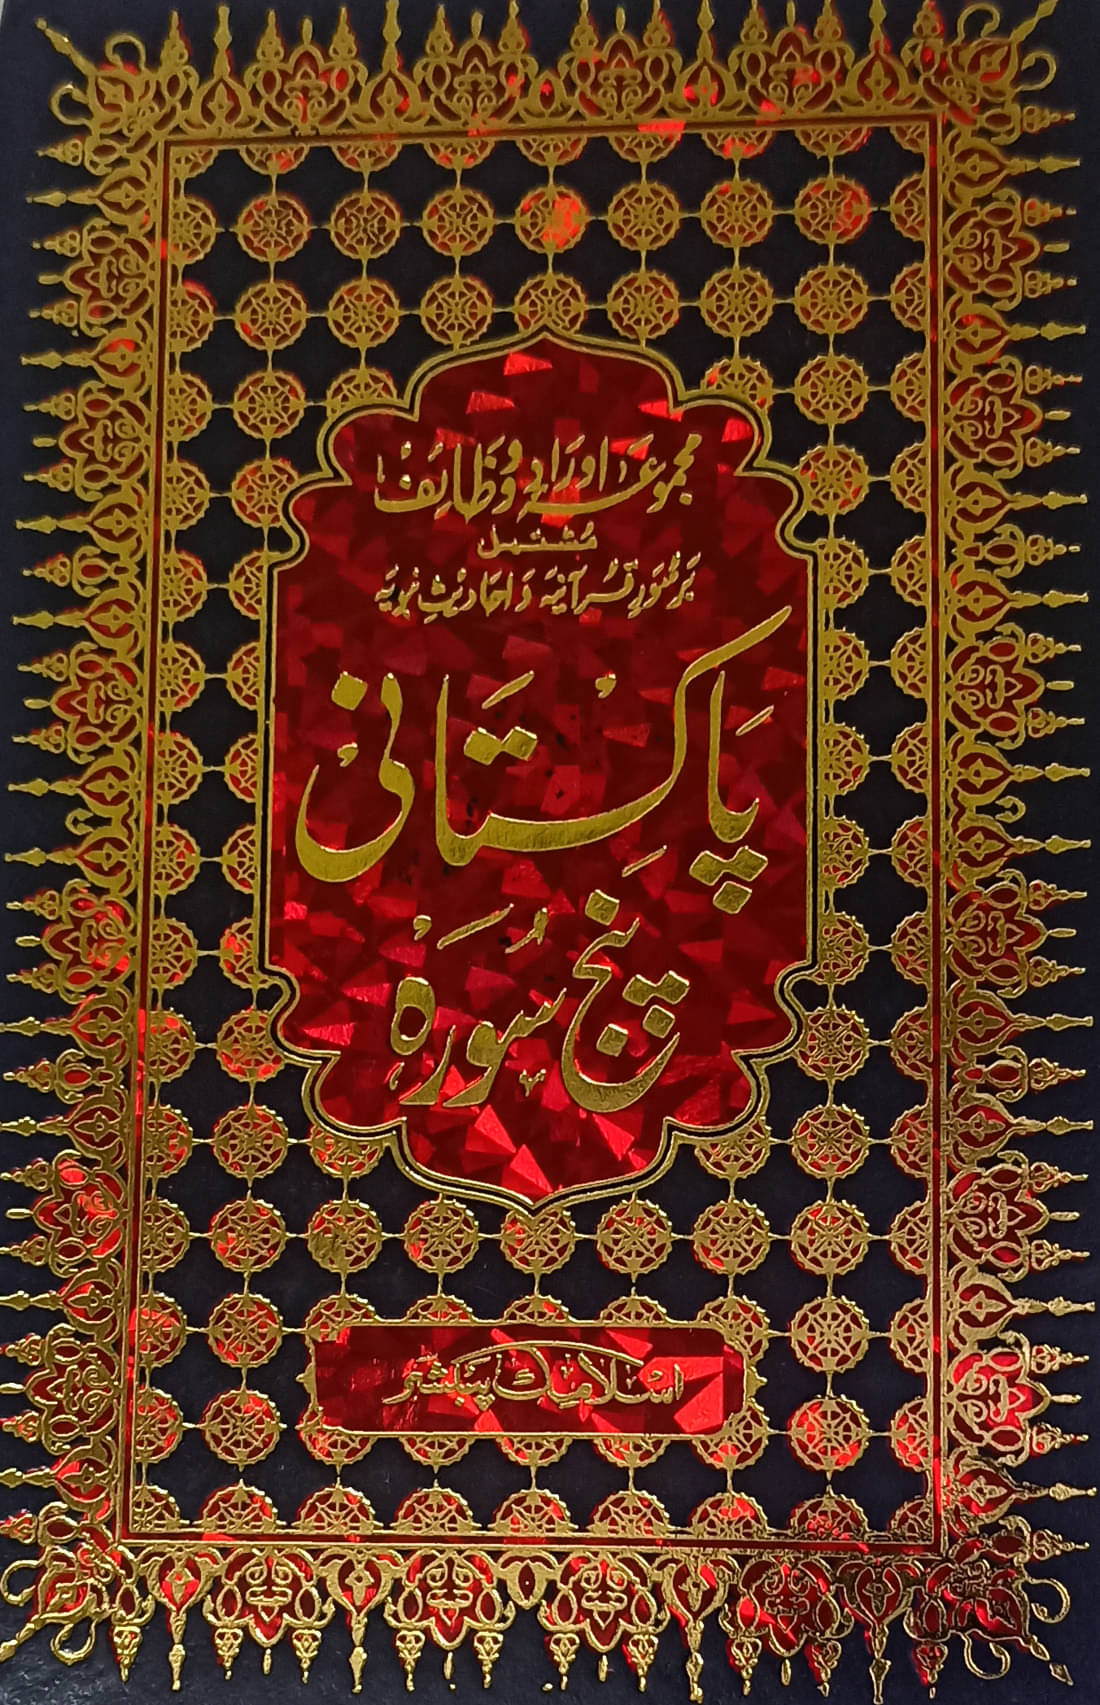 مجموعہ اوراد و وظائف
مشتمل
بر سُوَرِ قرآنیہ و احادیثِ نبویہ
پاکستانی
پنج سُورہ
اسلامک پبلشر